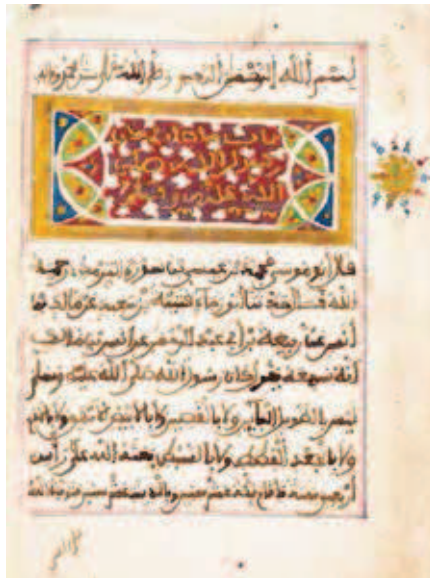 بسم الله الرحمن الرحيم وصلى الله
باب ما جاء في خلق
رسول الله صلى
الله عليه وسلم
قال أبو موسى محمد بن عيسى بن سورة الترمذي رحمه
الله قال حدثنا أبو رجاء قتيبة بن سعيد عن مالك بن
أنس عن ربيعة بن أبي عبد الرحمن عن أنس بن مالك
أنه سمعه يقول كان رسول الله صلى الله عليه وسلم
ليس بالطويل البائن ولا بالقصير ولا بالأبيض ولا بالآدم
ولا بالجعد القطط ولا بالسبط بعثه الله على رأس
أربعين سنة فأقام بمكة عشر سنين وبالمدينة عشر سنين